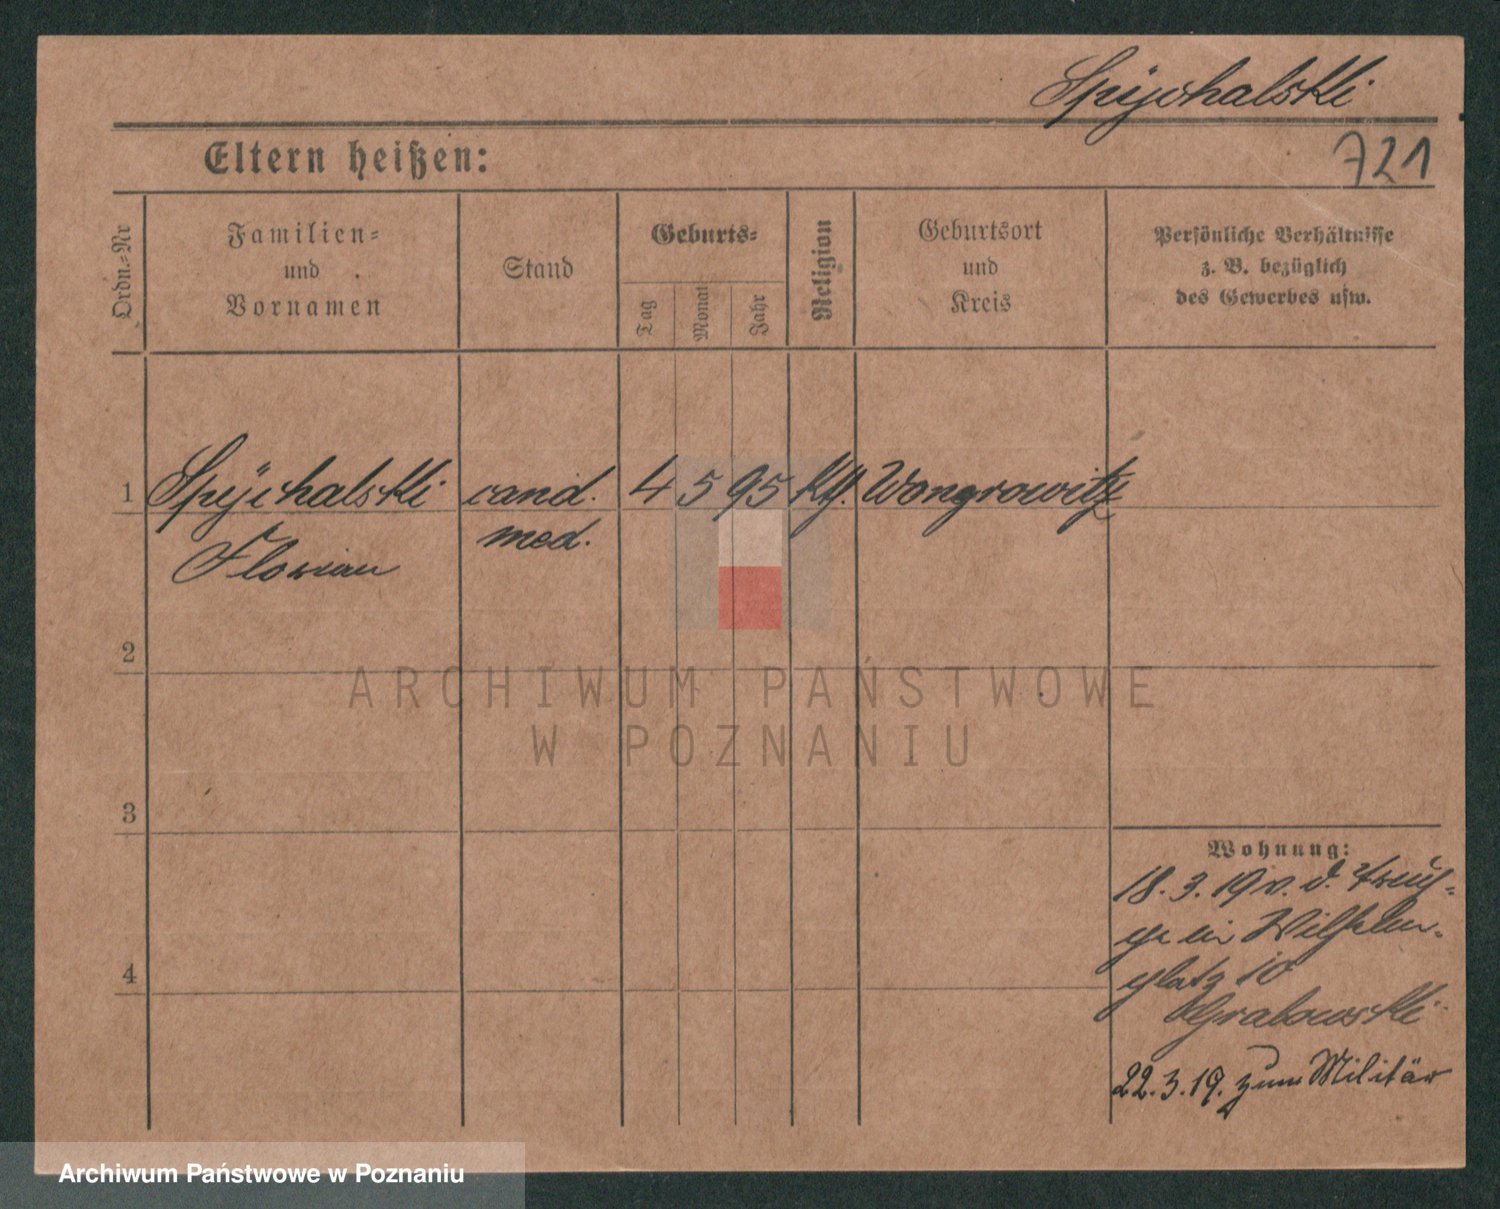 Spÿchalski
Eltern heißen:
721
Ordn.-Nr
Familien-
und
Vornamen
Stand
Geburts-
Tag
Monat
Jahr
Religion
Geburtsort
und
Kreis
Persönliche Verhältnisse
z. B. bezüglich
des Gewerbes usw.
1 Spÿchalski cand. 4 5 95 Kth. Wongrowitz
Florian med.
2
3
4
Wohnung:
18.3.19 v. d.
in Wilhelm-
platz 10
Grabowski
22.3.19. zum Militär
ARCHIWUM PAŃSTWOWE
W POZNANIU
Archiwum Państwowe w Poznaniu